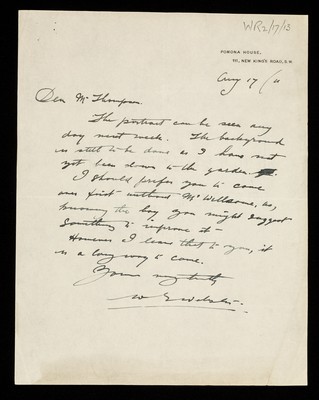 WR2/17/13
POMONA HOUSE,
111, NEW KING'S ROAD, S.W.
Aug 17 / 11
Dear Mr Thompson.
The portrait can be seen any
day next week. The background
is still to be done as I have not
yet been down to the garden.
I should prefer you to come
over first without Mr Wellcome, as,
knowing the boy you might suggest
something to improve it -
However I leave that to you, it
is a long way to come.
Yours very truly